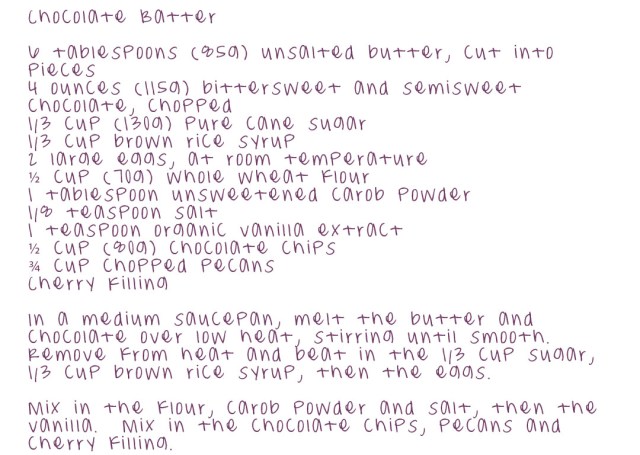 Chocolate Batter
6 tablespoons (85g) unsalted butter, cut into
pieces
4 ounces (115g) bittersweet and semisweet
chocolate, chopped
1/3 cup (130g) pure cane sugar
1/3 cup brown rice syrup
2 large eggs, at room temperature
½ cup (70g) whole wheat flour
1 tablespoon unsweetened carob powder
1/8 teaspoon salt
1 teaspoon organic vanilla extract
½ cup (80g) chocolate chips
¾ cup chopped pecans
Cherry Filling
In a medium saucepan, melt the butter and
chocolate over low heat, stirring until smooth.
Remove from heat and beat in the 1/3 cup sugar,
1/3 cup brown rice syrup, then the eggs.
Mix in the flour, carob powder and salt, then the
vanilla. Mix in the chocolate chips, pecans and
Cherry Filling.